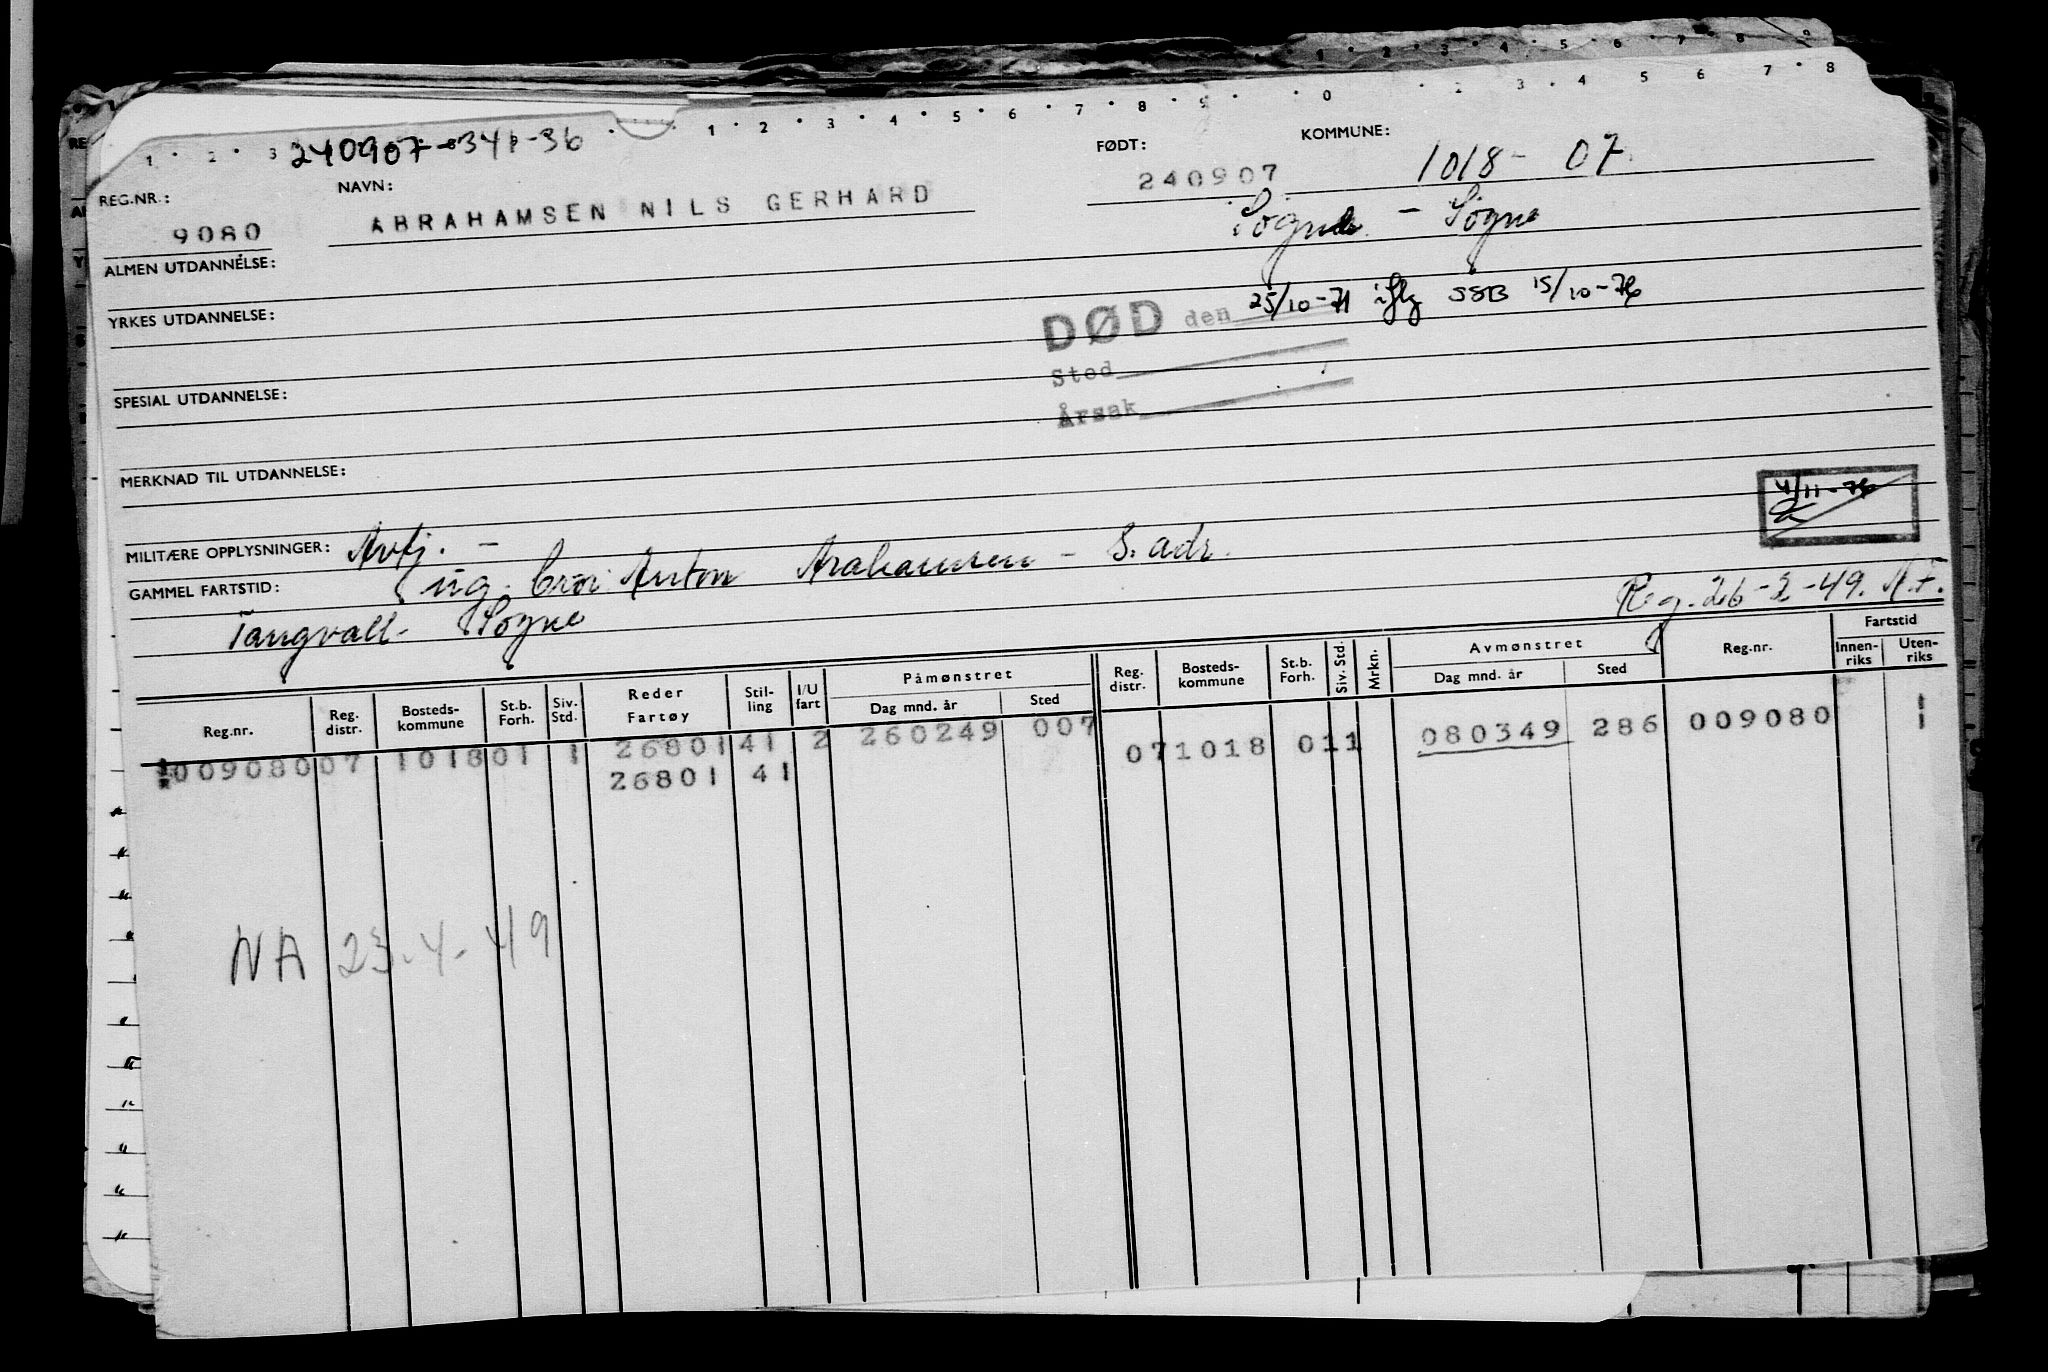 1 2 3 1 2 3 4 5 6 7 8 9
1 · 2 · 3 240907-341-36 · 1 · 2 · 3 · 4 · 5 · 6 · 7 · 8 · 9 · 0 · 2 3 · 4 5 6 7 · 8
REG.NR.: NAVN: FØDT: KOMMUNE:
9080 ABRAHAMSEN NILS GERHARD 240907 1018- 07.
Søgne - Søgne
ALMEN UTDANNELSE:
YRKES UTDANNELSE:
DØD den 25/10-71 iflg SSB 15/10-76
Sted
SPESIAL UTDANNELSE:
Årsak
MERKNAD TIL UTDANNELSE:
4/11-76
MILITÆRE OPPLYSNINGER:
GAMMEL FARTSTID: ug. bror Anton Arahamsen - S. adr.
Tangvall - Søgne
Reg. 26-2-49. A.F.
Reg.nr. Reg. distr. Bosteds-kommune St.b. Forh. Siv. Std. Reder Fartøy Stil-ling I/U fart Påmønstret Dag mnd. år Sted Reg. distr. Bosteds-kommune St.b. Forh. Siv. Std. Mrkn. Avmønstret Dag mnd. år Sted Reg.nr. Fartstid Innen-riks Uten-riks
009080 07 1018 01 1 26801 41 2 260249 007 07 1018 01 1 080349 286 009080 1
26801 41 1
NA 23.4-49